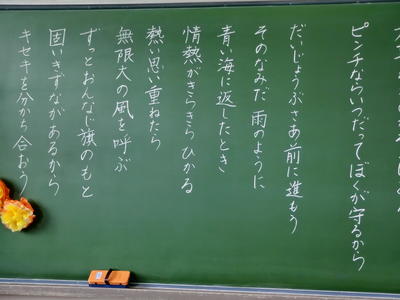 ピンチならいつだってぼくが守るから
だいじょうぶさあ前に進もう
そのなみだ 雨のように
青い海に返したとき
情熱がきらきら ひかる
熱い思い重ねたら
無限大の風を呼ぶ
ずっとおんなじ旗のもと
固いきずながあるから
キセキを分かち合おう